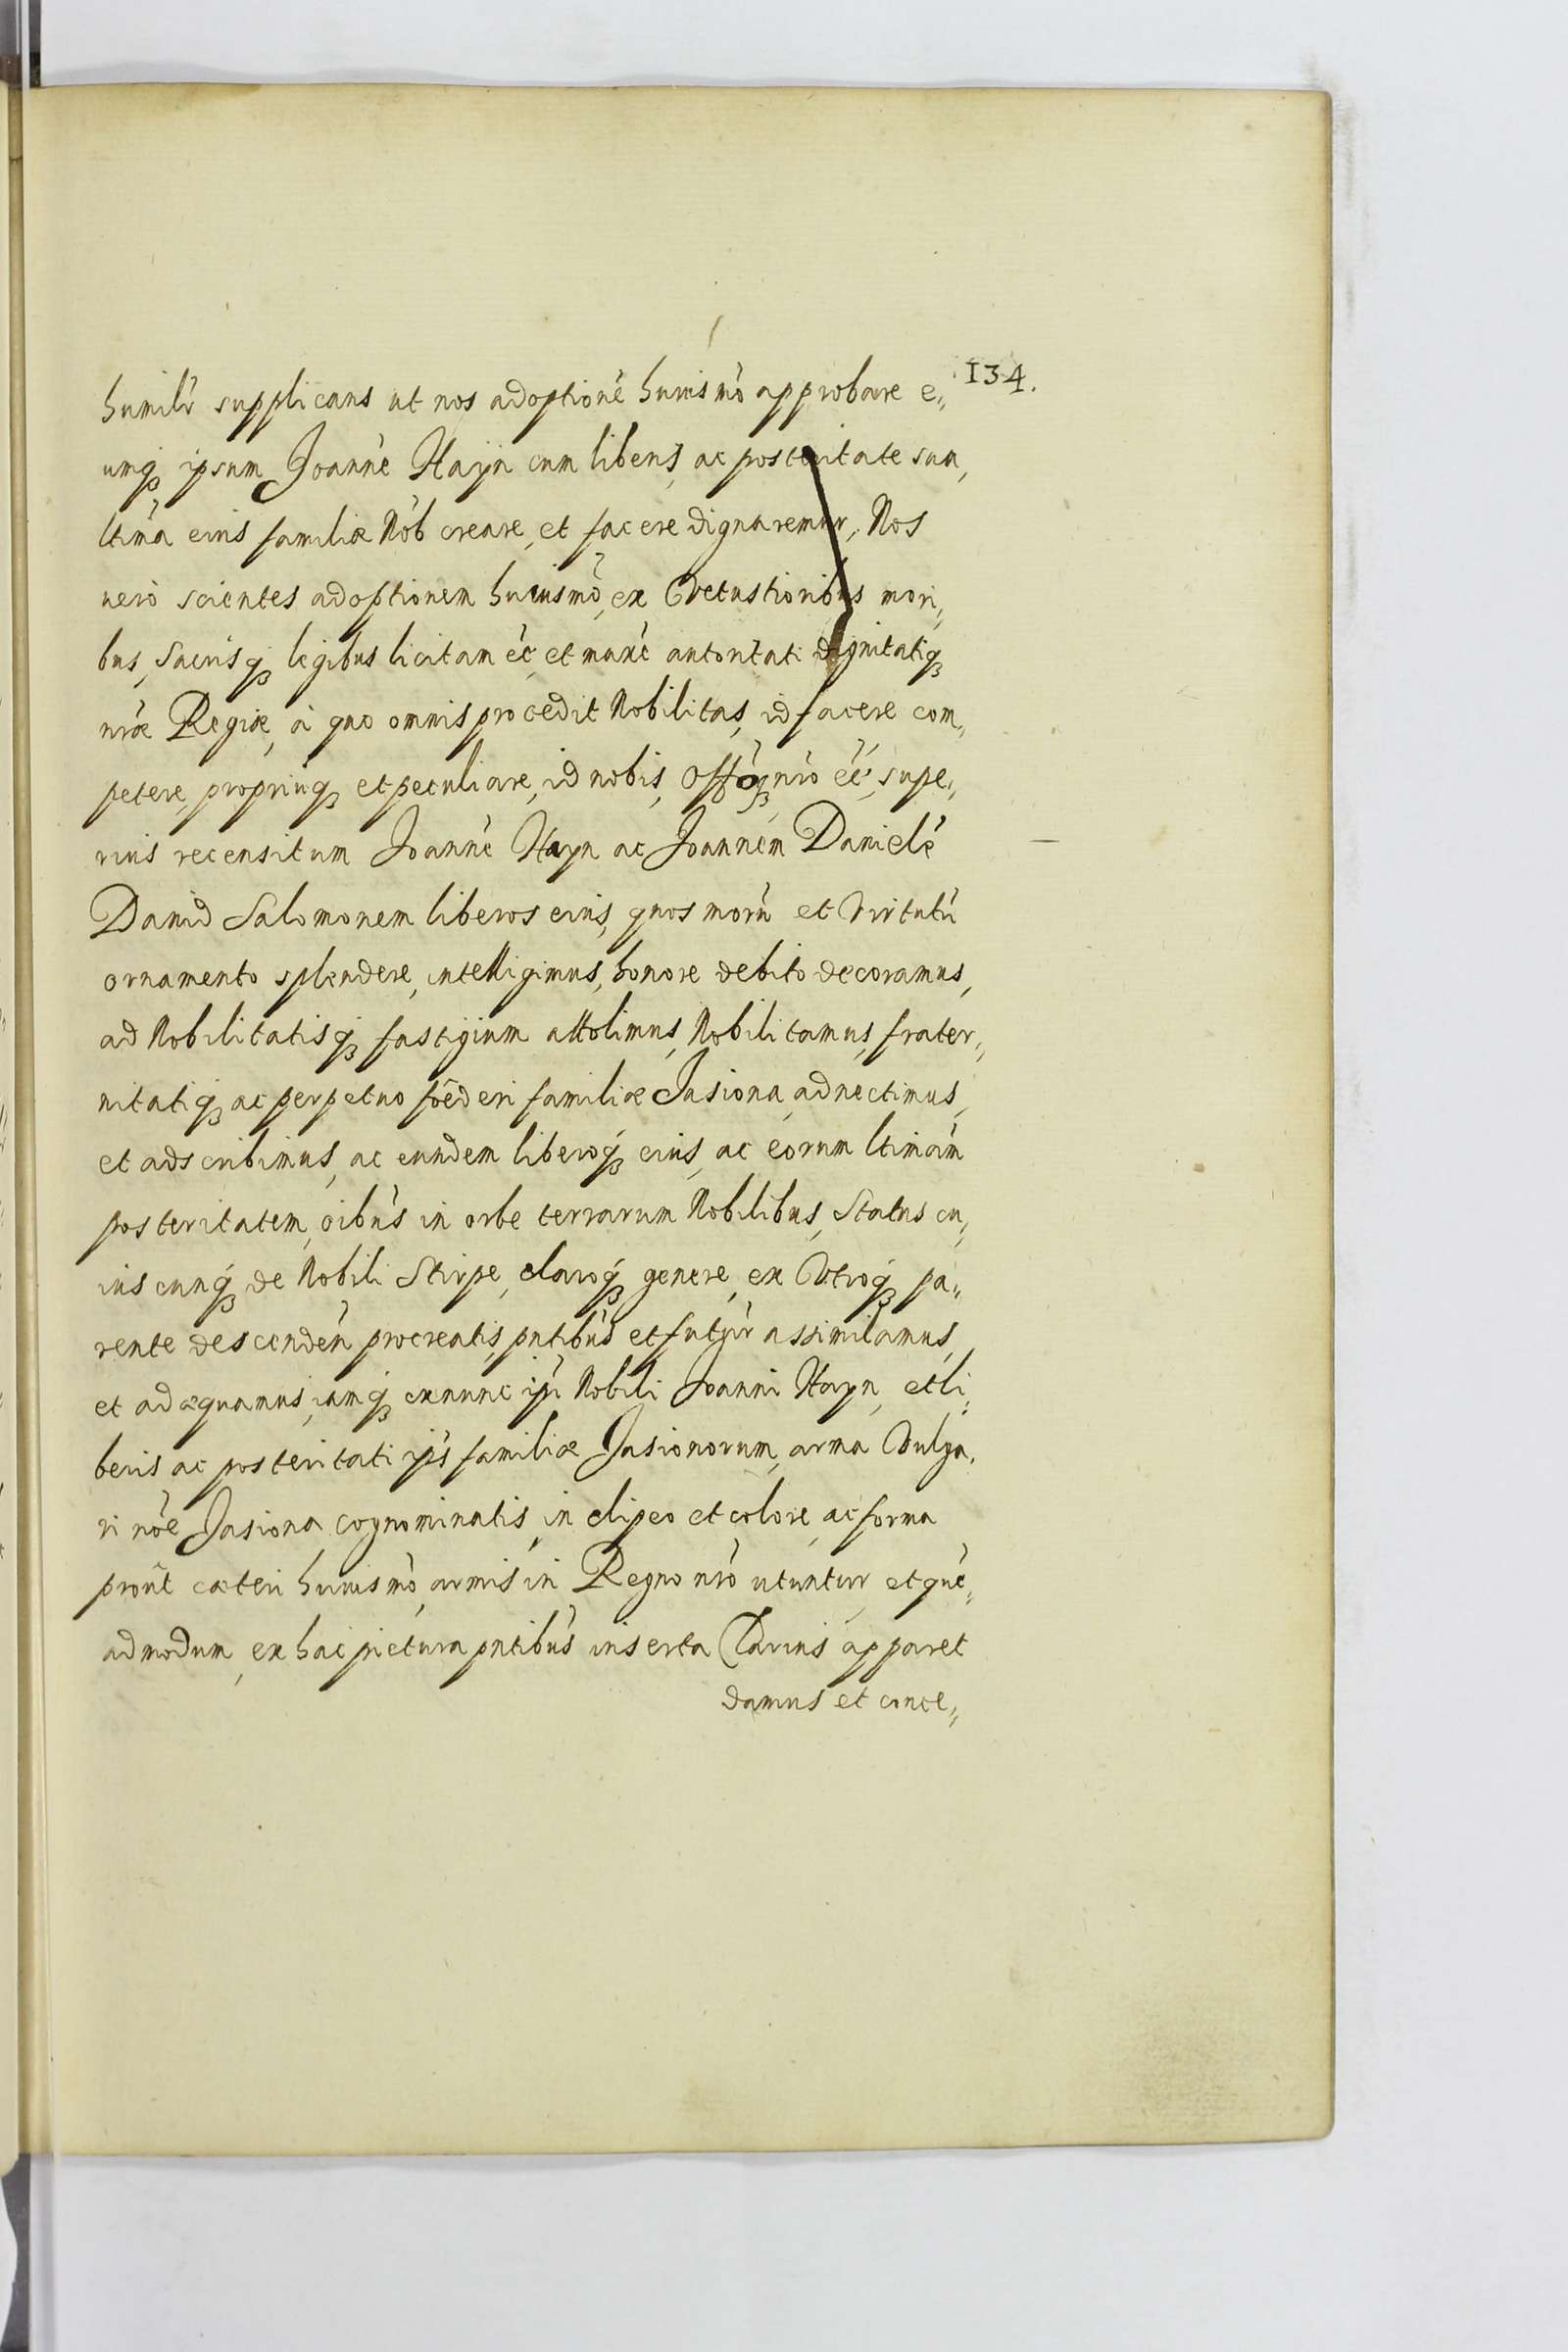 134.
humilr̀ supplicans ut nos adoptionè huiusmò approbare e„
umq́ꝫ ipsum Joannè Hayn cum liberis, ac posteritate sua,
ltimà eius familiæ Nòb creare, et facere dignaremur, Nos
uerò scientes adoptionem huiusmò, ex Vetustioribus mori„
bus, Sacrisq́ꝫ legibus licitam èe, et maxè autoritati dignitatiq́ꝫ
nràe Regiæ, à quo omnis procedit Nobilitas, id facere com„
petere, propriuq́ꝫ et peculiare, id nobis, Offòq́ꝫ nrò èe, supe„
rius recensitum Joannè Hayn ac Joannem Danielè
Dauid Salomonem liberos eius, quos morù et Virtutù
ornamento splendere, intelligimus, honore debito decoramus,
ad Nobilitatisq́ꝫ fastigium attolimus, Nobilitamus, frater„
nitatiq́ꝫ ac perpetuo fœderi familiæ Jasiona, adnectimus,
et adscribimus, ac eundem liberoq́ꝫ eius, ac eorum ltimàm
posteritatem, oibùs in orbe terrarum Nobilibus, Status cu„
ius cunq́ꝫ de Nobili Stirpe, claroq́ꝫ genere, ex Vtroq́ꝫ pa„
rente descendeǹ procreatis, pntibùs et futur̀ assimilamus,
et adæquamus, iamq́ꝫ exnunc ipì Nobili Joanni Hayn, et li„
beris ac posteritati ips̀ familiæ Jasionorum, arma Vulga„
ri nòe Jasiona cognominatis, in clipeo et colore, ac forma
proũt cæteri huiusmò, armis in Regno nrò utuntur, et què„
admodum, ex hac pictura pntibùs inserta Clarius apparet
damus et conce„